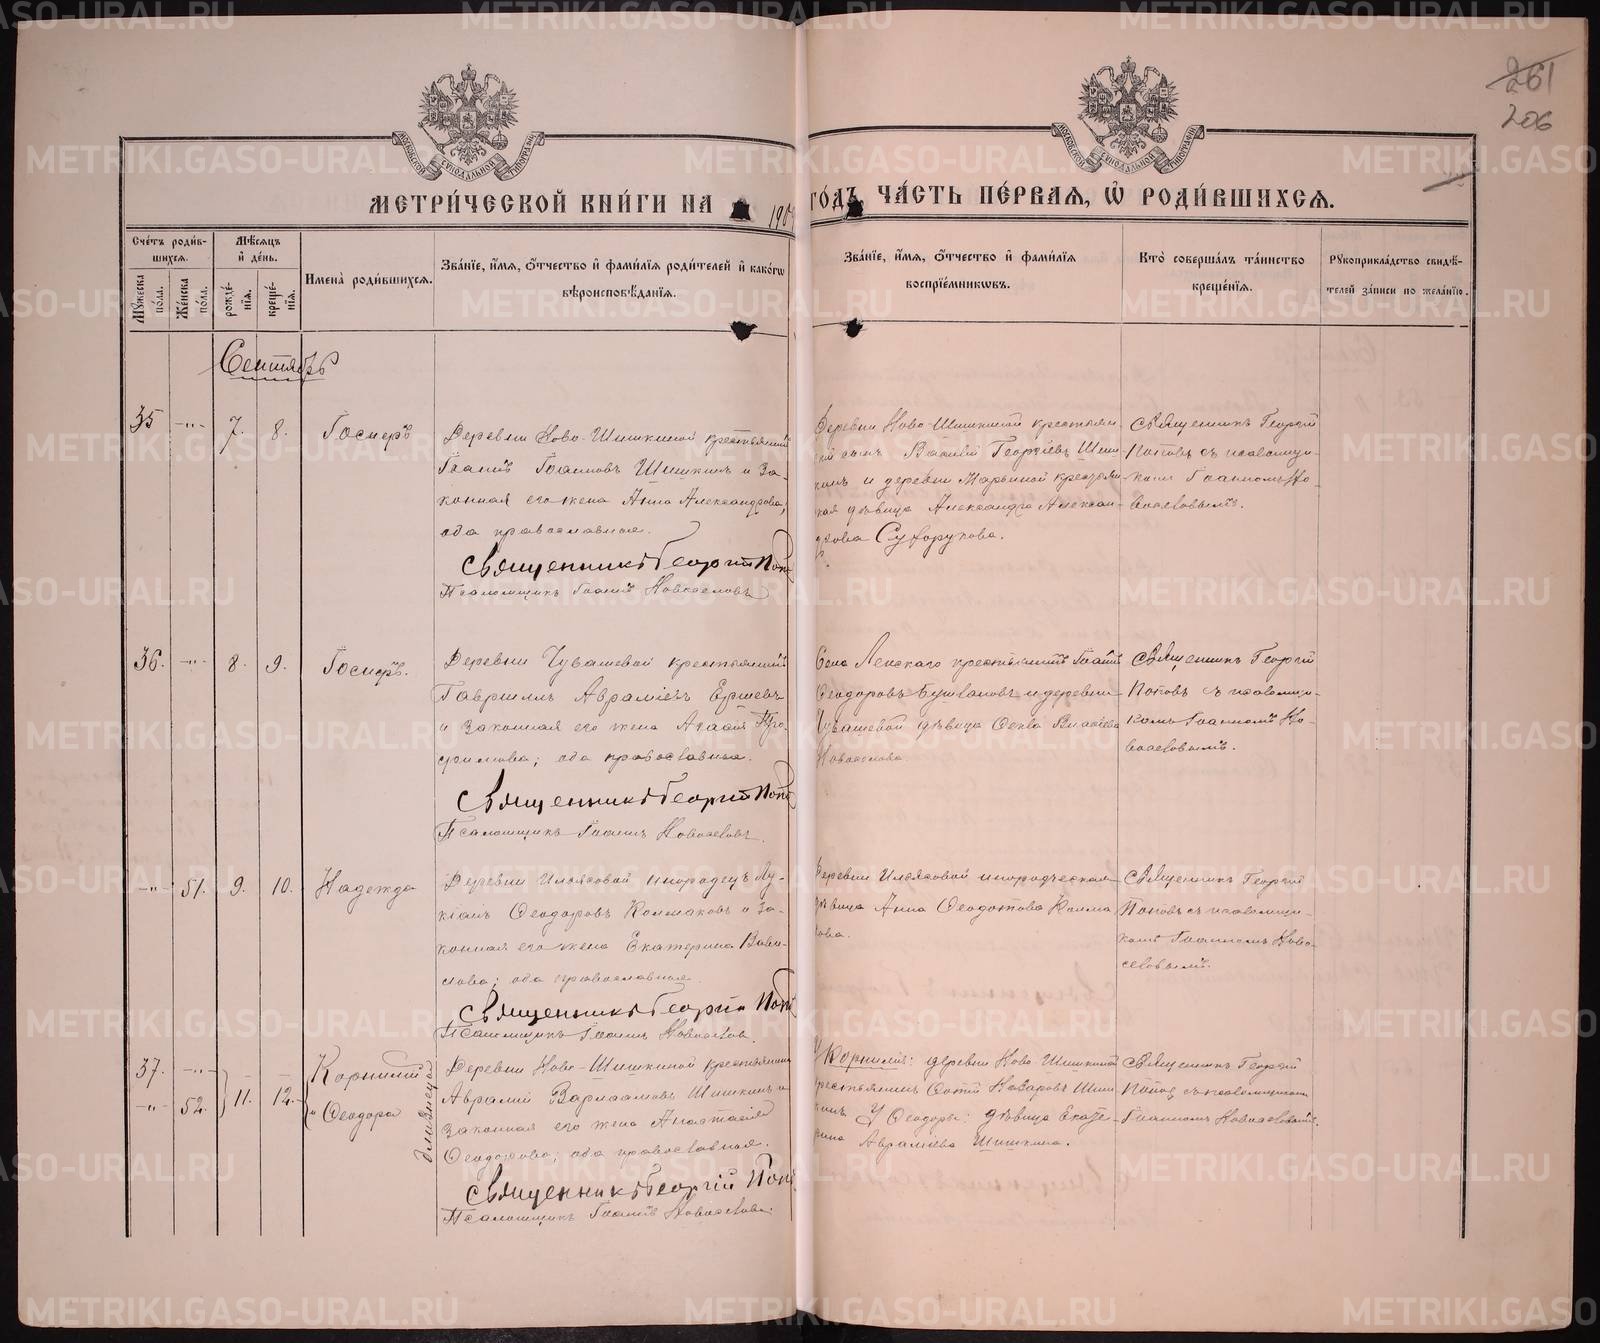 261
206
МЕТРИ́ЧЕСКОЙ КНИ́ГИ НА 190 ГОДЪ, ЧА́СТЬ ПЕ́РВАЯ, Ѡ РОДИ́ВШИХСЯ.
Сче́тъ роди́в-
шихся.
Мꙋ́жеска по́ла.
Же́нска по́ла.
Мѣ́сяцъ и де́нь.
рожде́-
нїя.
креще́-
нїя.
Имена̀ роди́вшихся.
Зва́нїе, и́мя, о́тчество и фами́лїя роди́телей и како́гѡ
вѣроисповѣ́данїя.
Зва́нїе, и́мя, о́тчество и фами́лїя
воспрїе́мникѡвъ.
Кто̀ соверша́лъ та́инство
креще́нїя.
Рꙋкоприкла́дство свидѣ́-
телей за́писи по жела́нїю.
Сентябрь
35 -"- 7. 8.
Деревни Ново-Шишкиной крестьянинъ
Іоаннъ Шишкинъ и За-
конная его жена Анна Александрова,
оба православные.
Священникъ Георгій Поп
Псаломщикъ Іоаннъ
Деревни Ново-Шишкиной крестьян
сынъ Василій Георгіевъ Шиш
кинъ и деревни Марьиной крестьян
ская дѣвица Александра Алексан-
дрова
Священникъ Георгій
Поповъ съ псаломщи-
комъ Іоанномъ Но-
воселовымъ.
36. -"- 8. 9.
Деревни Чувашевой крестьянинъ
Гавріилъ Авраміевъ
и законная его жена Агафія Тро-
фимова; оба православные.
Священникъ Георгій Поп
Псаломщикъ Іоаннъ Новоселовъ.
Села Ленскаго крестьянинъ Іоаннъ
Ѳеодоровъ и деревни
Чувашевой дѣвица Ѳекла Власіева
Священникъ Георгій
Поповъ съ псаломщи-
комъ Іоанномъ Но-
воселовымъ.
-"- 51. 9. 10. Надежда
Деревни Ильясовой инородецъ Лу-
кіанъ Ѳеодоровъ Колмаковъ и за-
конная его жена Екатерина Вави-
лова; оба православные.
Священникъ Георгій Поп
Псаломщикъ Іоаннъ Новоселов.
Деревни Ильясовой инородческая
дѣвица Анна Ѳеодотова Колма
кова.
Священникъ Георгій
Поповъ съ псаломщи-
комъ Іоанномъ Ново-
селовымъ.
37. -"-
-"- 52. 11. 12.
Корнилій
и Ѳеодора
близнецы
Деревни Ново-Шишкиной крестьянинъ
Аврамій Варлаамовъ Шишкинъ и
законная его жена Анастасія
Ѳеодорова; оба православные.
Священникъ Георгій Поп
Псаломщикъ Іоаннъ Новоселовъ.
У Корнилія: деревни Ново Шишкиной
крестьянинъ Шиш
кинъ У Ѳеодоры: дѣвица Екате-
рина Авраміева Шишкина.
Священникъ Георгій
Попов съ псаломщикомъ
Іоанномъ Новоселовымъ.
METRIKI.GASO-URAL.RU